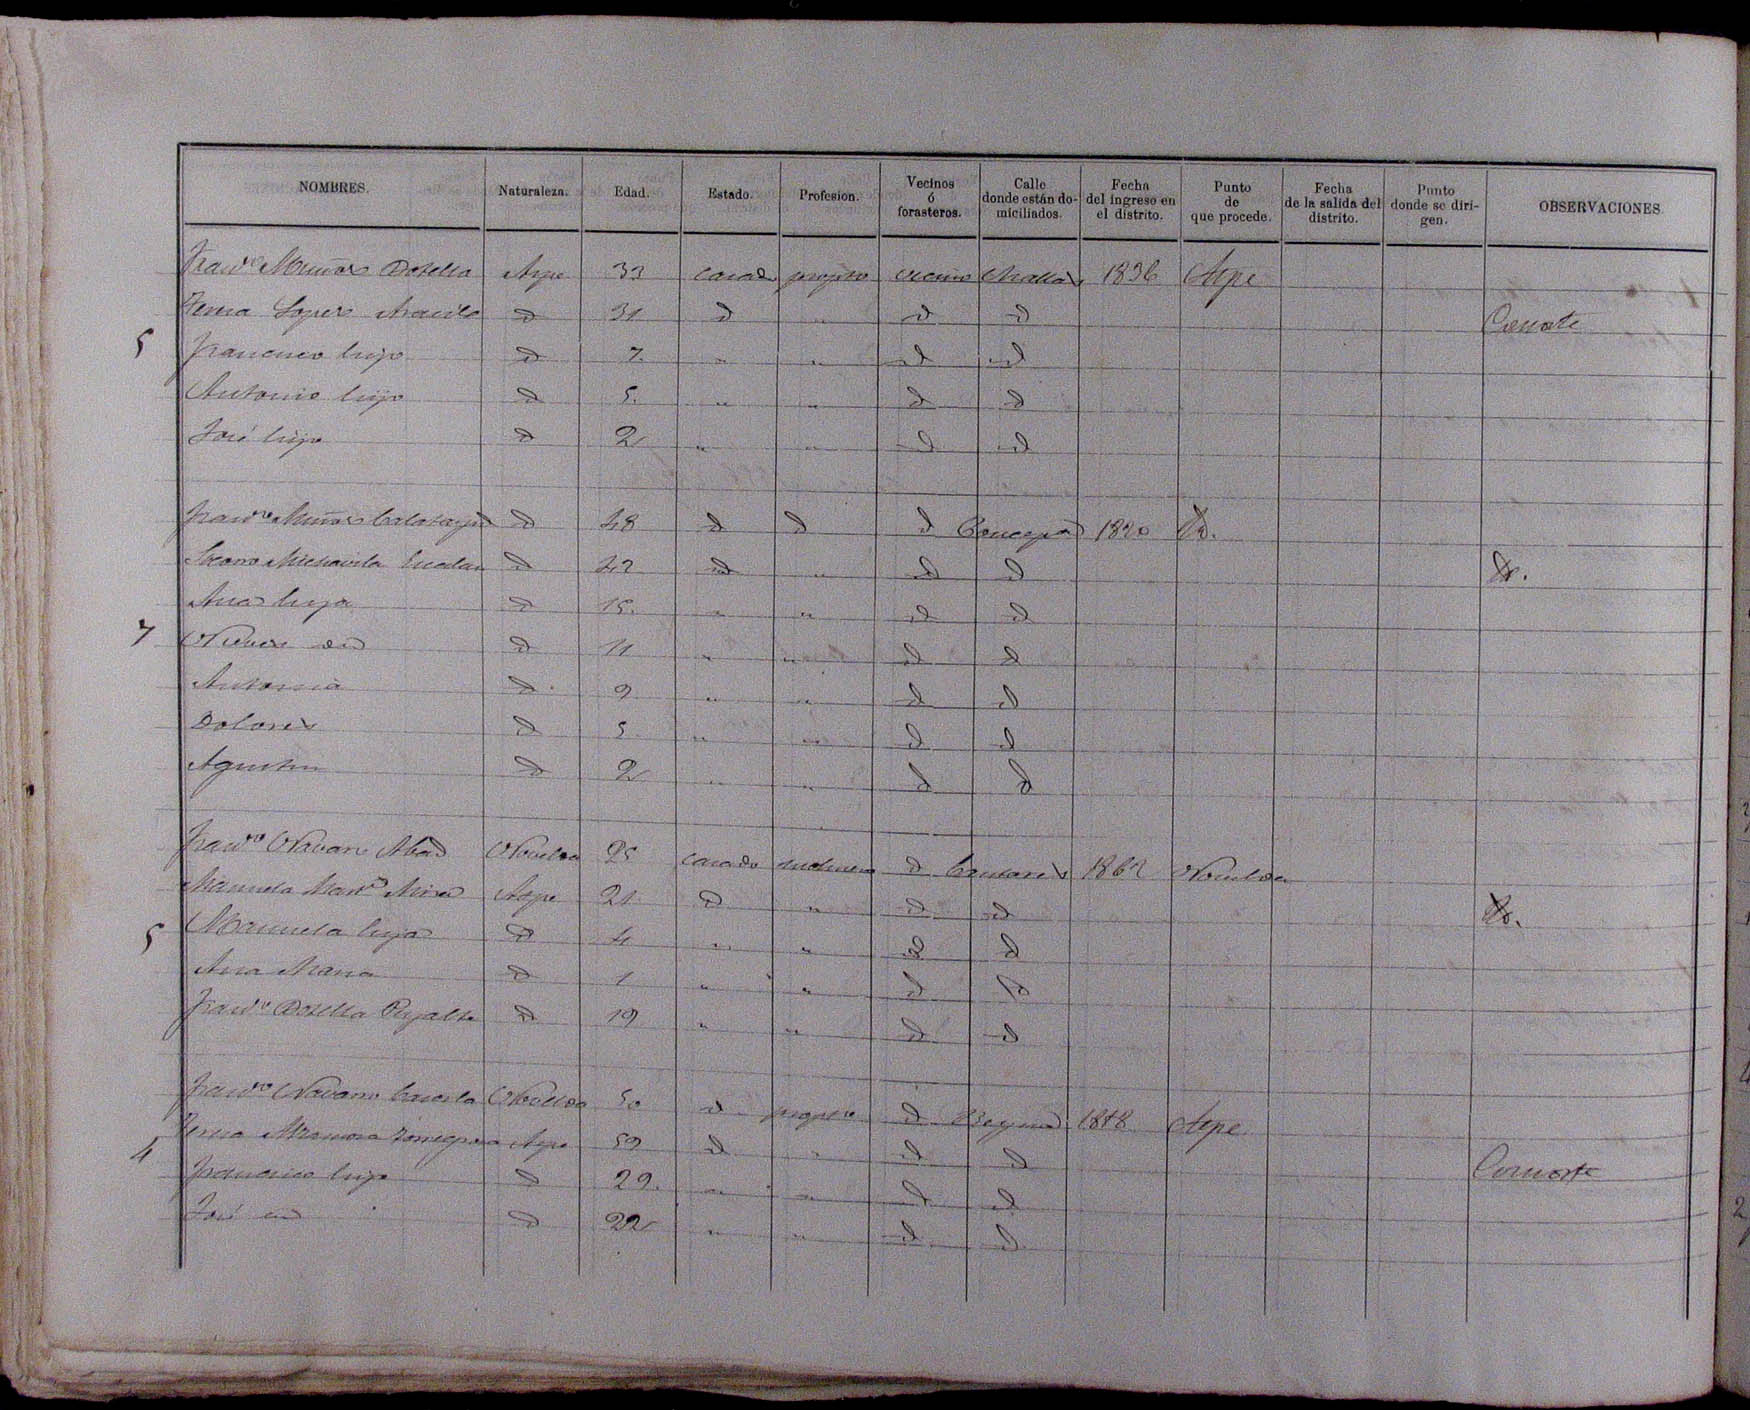 NOMBRES. Naturaleza. Edad. Estado. Profesion. Vecinos ó forasteros. Calle donde están domiciliados. Fecha del ingreso en el distrito. Punto de que procede. Fecha de la salida del distrito. Punto donde se dirigen. OBSERVACIONES.
Franco Muñoz Botella Aspe 33 casado vecino 1836 Aspe
Teresa Lopez Aracil d 31 d " d d Consorte
5 Francisco hijo d 7 " " d d
Antonio hijo d 5 " " d d
José hijo d 2 " " d d
Franco Muñoz Calatayud d 48 d d d Concepn 1820 d.
Michavila d 42 d " d d d.
Ana hija d 15 " " d d
7 Nieves id d 11 " " d d
Antonia d 9 " " d d
Dolores d 5 " " d d
Agustin d 2 " " d d
Franco Navarro Abad Novelda 25 casado molinero d 1862 Novelda
Manuela Mira Aspe 21 d " d d d.
5 Manuela hija d 4 " " d d
Ana Maria d 1 " " d d
Franco Botella Pujalte d 19 " " d d
Franco Navarro Novelda 50 d d 1818 Aspe
Teresa Aspe 59 d " d d
4 Francisco hijo d 29 " " d d Consorte
José id d 22 " " d d